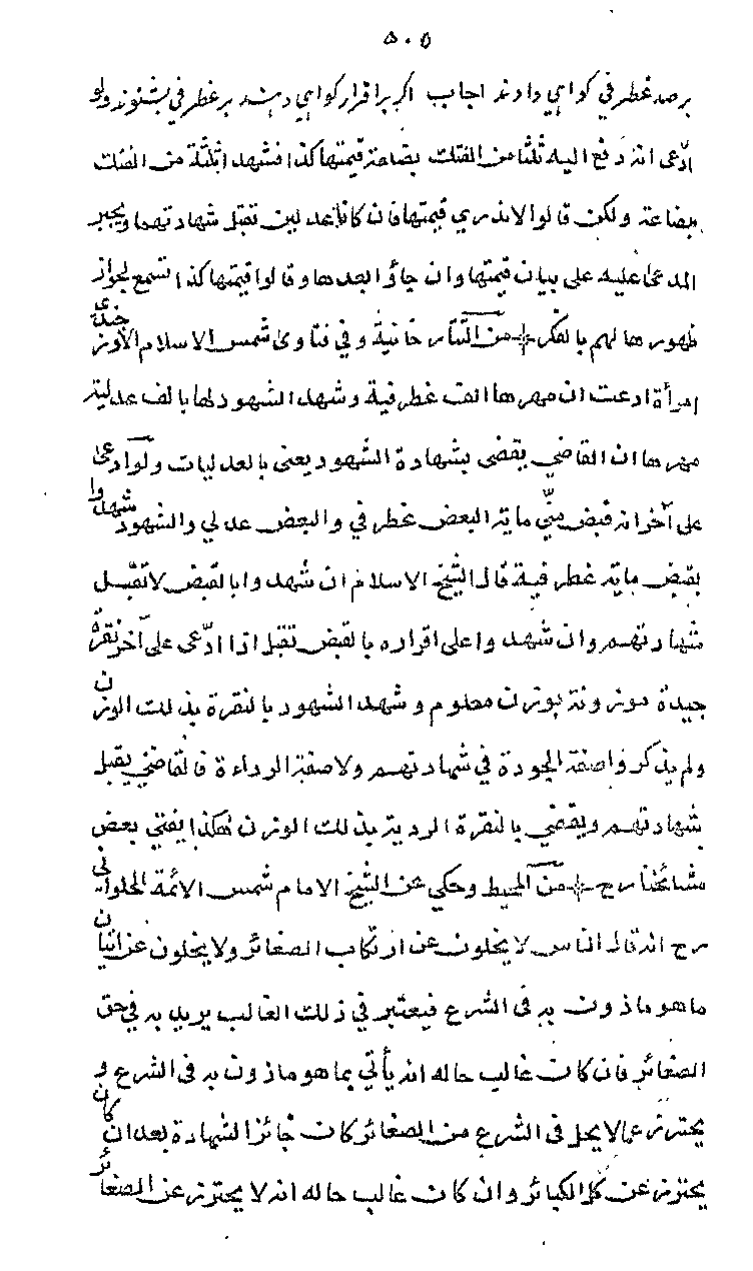 ٥٠٥
برصد غطرفي كواهي دادند اجاب اكر براقرار كواهي دهند بر غطرفي بشنوند ولو
ادّعى انه دفع اليه ثلثا من الفتلت بضاعة قيمتها كذا فشهد اثلثة من الفتلت
بضاعة ولكن قالوا لا ندري قيمتها فان كانا عدلين تقبل شهادتهما ويجبر
المدعا عليه على بيان قيمتها وان جاؤا بعدها وقالوا قيمتها كذا تسمع لجواز
ظهورها لهم بالفكر من التتار خانية وفي فتاوى شمس الاسلام الاوزجندي
امرأة ادعت ان مهرها الف غطرفية وشهد الشهود لها بالف عدلية
مهرها ان القاضي يقضي بشهادة الشهود يعني بالعدليات ولو ادعى
على آخر انه قبض منّي ماية البعض غطرفي والبعض عدلي والشهود شهدوا
بقبض ماية غطرفية قال الشيخ الاسلام ان شهدوا بالقبض لا تقبل
شهادتهم وان شهدوا على اقراره بالقبض تقبل اذا ادّعى على آخر نقرة
جيدة موزونة بوزن معلوم وشهد الشهود بالنقرة بذلك الوزن
ولم يذكروا صفة الجودة في شهادتهم ولا صفة الرداءة فالقاضي يقبل
شهادتهم ويقضي بالنقرة الردية بذلك الوزن هكذا يفتي بعض
مشائخنا رح من المحيط وحكي عن الشيخ الامام شمس الائمة الحلواني
رح انه قال الناس لا يخلون عن ارتكاب الصغائر ولا يخلون عن اتيان
ما هو ماذون به في الشرع فيعتبر في ذلك الغالب يريد به في حق
الصغائر فان كان غالب حاله انه يأتي بما هو ماذون به في الشرع و
يحترز عما لا يحل في الشرع من الصغائر كان جائز الشهادة بعد ان كان
يحترز عن كل الكبائر وان كان غالب حاله انه لا يحترز عن الصغائر